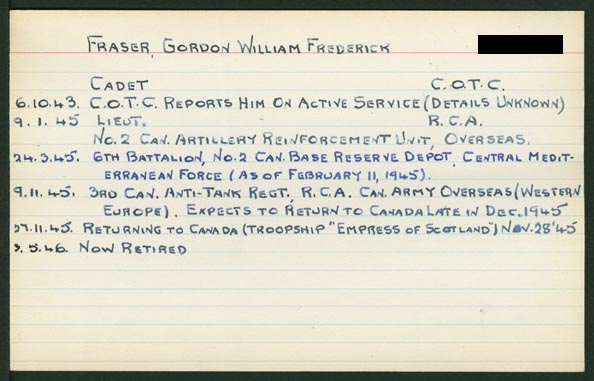 FRASER, GORDON WILLIAM FREDERICK
CADET C.O.T.C.
6.10.43. C.O.T.C. REPORTS HIM ON ACTIVE SERVICE (DETAILS UNKNOWN)
9.1.45 LIEUT. R.C.A.
NO.2 CAN. ARTILLERY REINFORCEMENT UNIT, OVERSEAS.
24.3.45. 6TH BATTALION, NO.2 CAN. BASE RESERVE DEPOT, CENTRAL MEDIT-
ERRANEAN FORCE (AS OF FEBRUARY 11, 1945).
9.11.45. 3RD CAN. ANTI-TANK REGT., R.C.A. CAN. ARMY OVERSEAS (WESTERN
EUROPE). EXPECTS TO RETURN TO CANADA LATE IN DEC. 1945
27.11.45. RETURNING TO CANADA (TROOPSHIP "EMPRESS OF SCOTLAND") NOV. 28'45
3.5.46. NOW RETIRED